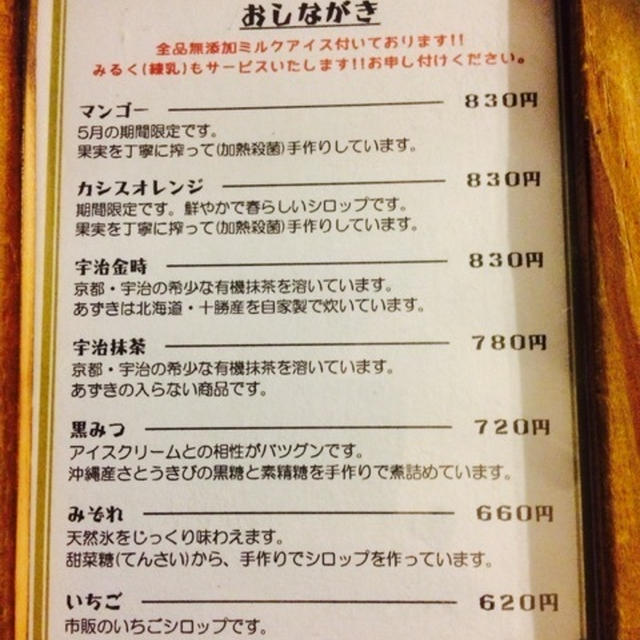 おしながき
全品無添加ミルクアイス付いております!!
みるく(練乳)もサービスいたします!!お申し付けください。
マンゴー 830円
5月の期間限定です。
果実を丁寧に搾って(加熱殺菌)手作りしています。
カシスオレンジ 830円
期間限定です。鮮やかで春らしいシロップです。
果実を丁寧に搾って(加熱殺菌)手作りしています。
宇治金時 830円
京都・宇治の希少な有機抹茶を溶いています。
あずきは北海道・十勝産を自家製で炊いています。
宇治抹茶 780円
京都・宇治の希少な有機抹茶を溶いています。
あずきの入らない商品です。
黒みつ 720円
アイスクリームとの相性がバツグンです。
沖縄産さとうきびの黒糖と素精糖を手作りで煮詰めています。
みぞれ 660円
天然氷をじっくり味わえます。
甜菜糖(てんさい)から、手作りでシロップを作っています。
いちご 620円
市販のいちごシロップです。